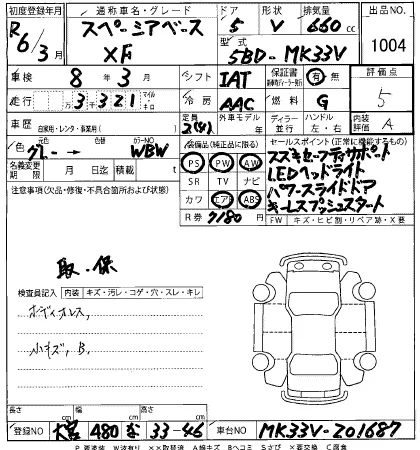 初度登録年月 通称車名・グレード ドア 形状 排気量 出品NO.
R 6/3月 スペーシアベース XF 5 V 660 cc 1004
型式 5BD-MK33V
車検 8年3月 シフト IAT 保証書 有 無 評価点 5
走行 3,321 マイル キロ 冷房 AAC 燃料 G
車歴 自家用・レンタ・事業用( ) 定員 2(4)人 外車モデル 年 ディーラー 並行 ハンドル 左・右 内装評価 A
色 グレー → 色替 カラーNO WBW
名義変更期限 月 日 積載 t
装備品(純正品に限る) PS PW AW SR TV ナビ カワ エアB ABS
R券 7180円
セールスポイント(正常に機能するもの)
スズキセーフティサポート
LEDヘッドライト
パワースライドドア
キーレスプッシュスタート
FW キズ・ヒビ割・リペア跡・X要
注意事項(欠品・修復・不具合箇所および状態)
取・保
検査員記入 内装 キズ・汚レ・コゲ・穴・スレ・キレ
ボディオレス,
小キズ, B.
長さ cm 幅 cm 高さ cm
登録NO 大宮 480 な 33-46 車台NO MK33V-201687
P 要塗装 W波有り ××取替済 A線キズ Bヘコミ Sさび ×要交換 C腐食